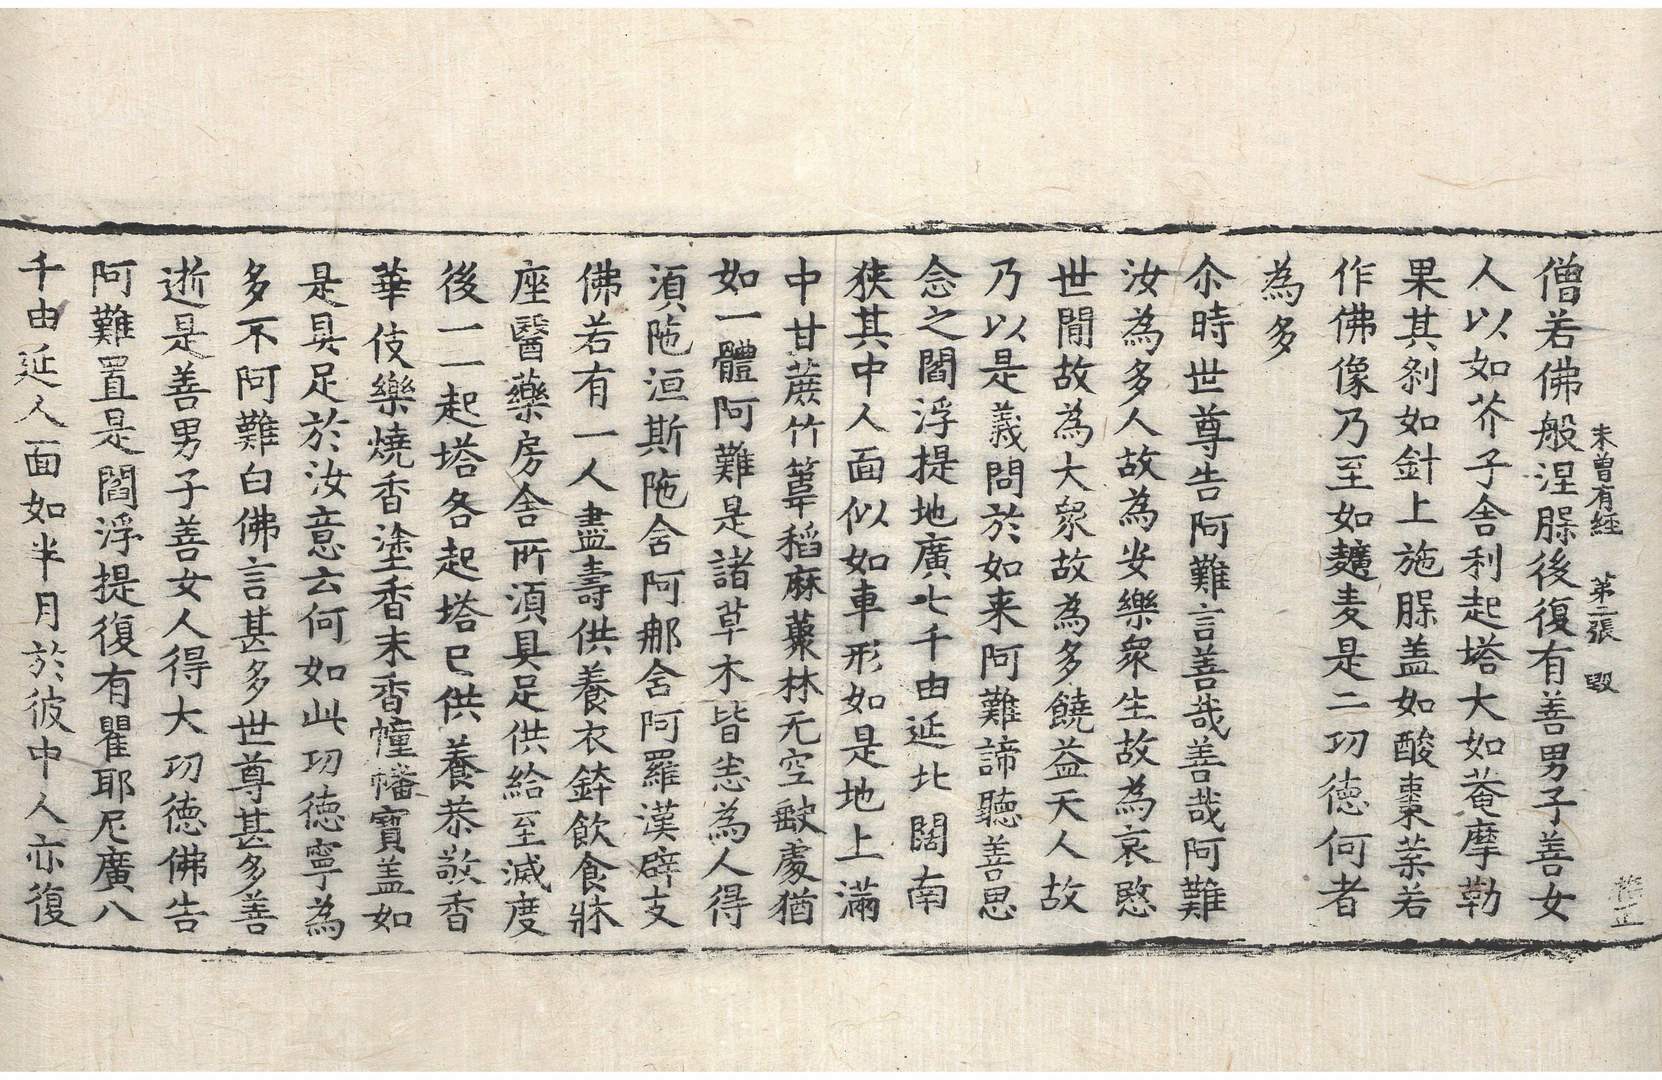 未曾有経 第二張 毀
僧若佛般涅脲後復有善男子善女
人以如芥子舍利起塔大如菴摩勒
果其刹如針上施脲盖如酸棗葉若
作佛像乃至如𪍿麦是二功德何者
為多
尒時世尊告阿難言善哉善哉阿難
汝為多人故為安樂衆生故為哀愍
世間故為大衆故為多饒益天人故
乃以是義問於如来阿難諦聽善思
念之閻浮提地廣七千由延北闊南
狭其中人面似如車形如是地上滿
中甘蔗竹葦稻麻䕺林无空缺處猶
如一體阿難是諸草木皆悉為人得
湏陁洹斯陁舍阿那舍阿羅漢辟支
佛若有一人盡壽供養衣鉢飲食牀
座醫藥房舍所湏具足供給至滅度
後一一起塔各起塔已供養恭敬香
華伎樂燒香塗香末香幢幡寶盖如
是具足於汝意云何如此功德寧為
多不阿難白佛言甚多世尊甚多善
逝是善男子善女人得大功德佛告
阿難置是閻浮提復有瞿耶尼廣八
千由延人面如半月於彼中人亦復